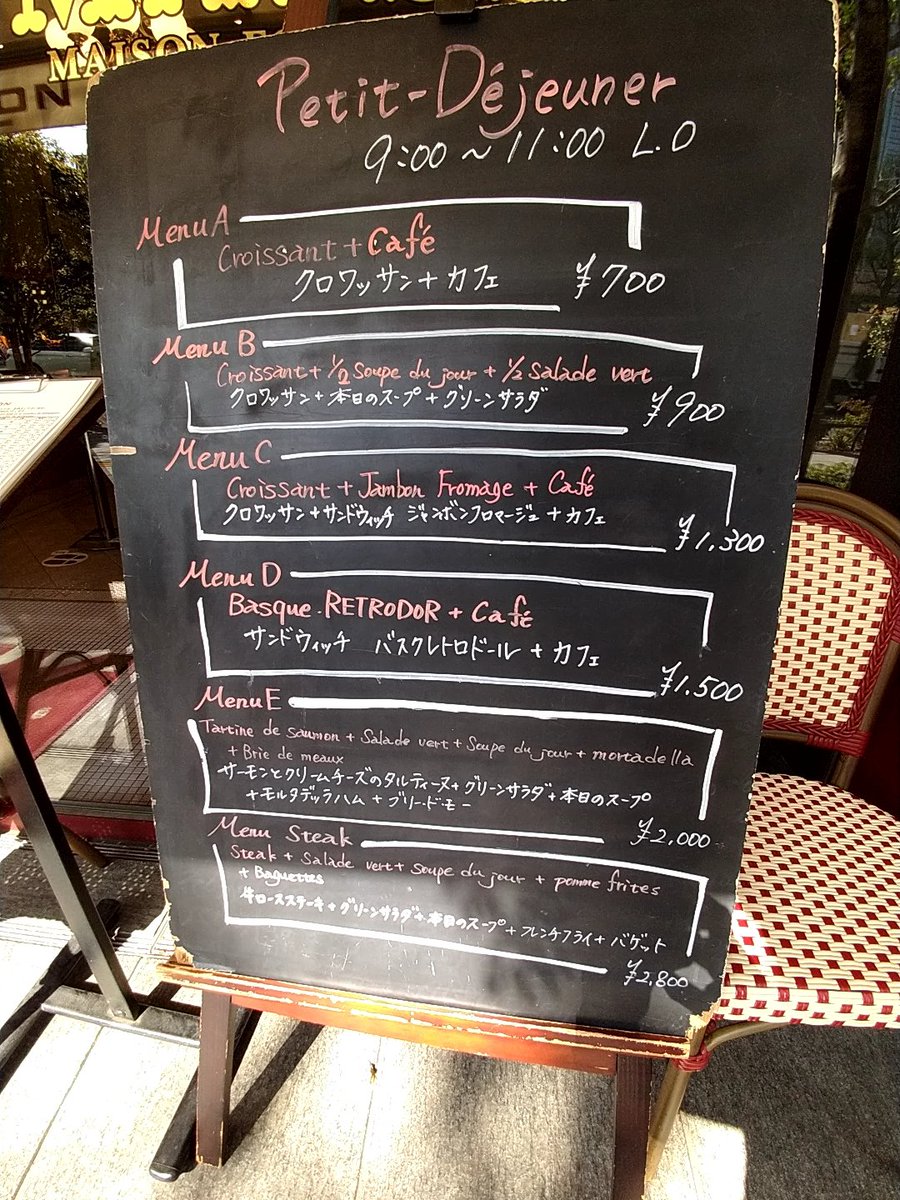 MAISON
ON
Petit-Déjeuner
9:00 ~ 11:00 L.O
Menu A
Croissant + Café
クロワッサン + カフェ
¥700
Menu B
Croissant + 1/2 Soupe du jour + 1/2 Salade vert
クロワッサン + 本日のスープ + グリーンサラダ
¥900
Menu C
Croissant + Jambon Fromage + Café
クロワッサン + サンドウィッチ ジャンボンフロマージュ + カフェ
¥1,300
Menu D
Basque.RETRODOR + Café
サンドウィッチ バスクレトロドール + カフェ
¥1.500
Menu E
Tartine de saumon + Salade vert + Soupe du jour + mortadella
+ Brie de meaux
サーモンとクリームチーズのタルティーヌ + グリーンサラダ + 本日のスープ
+ モルタデッラハム + ブリ・ド・モー
¥2,000
Menu Steak
Steak + Salade vert + Soupe du jour + pomme frites
+ Baguettes
牛ロースステーキ + グリーンサラダ + 本日のスープ + フレンチフライ + バゲット
¥2,800